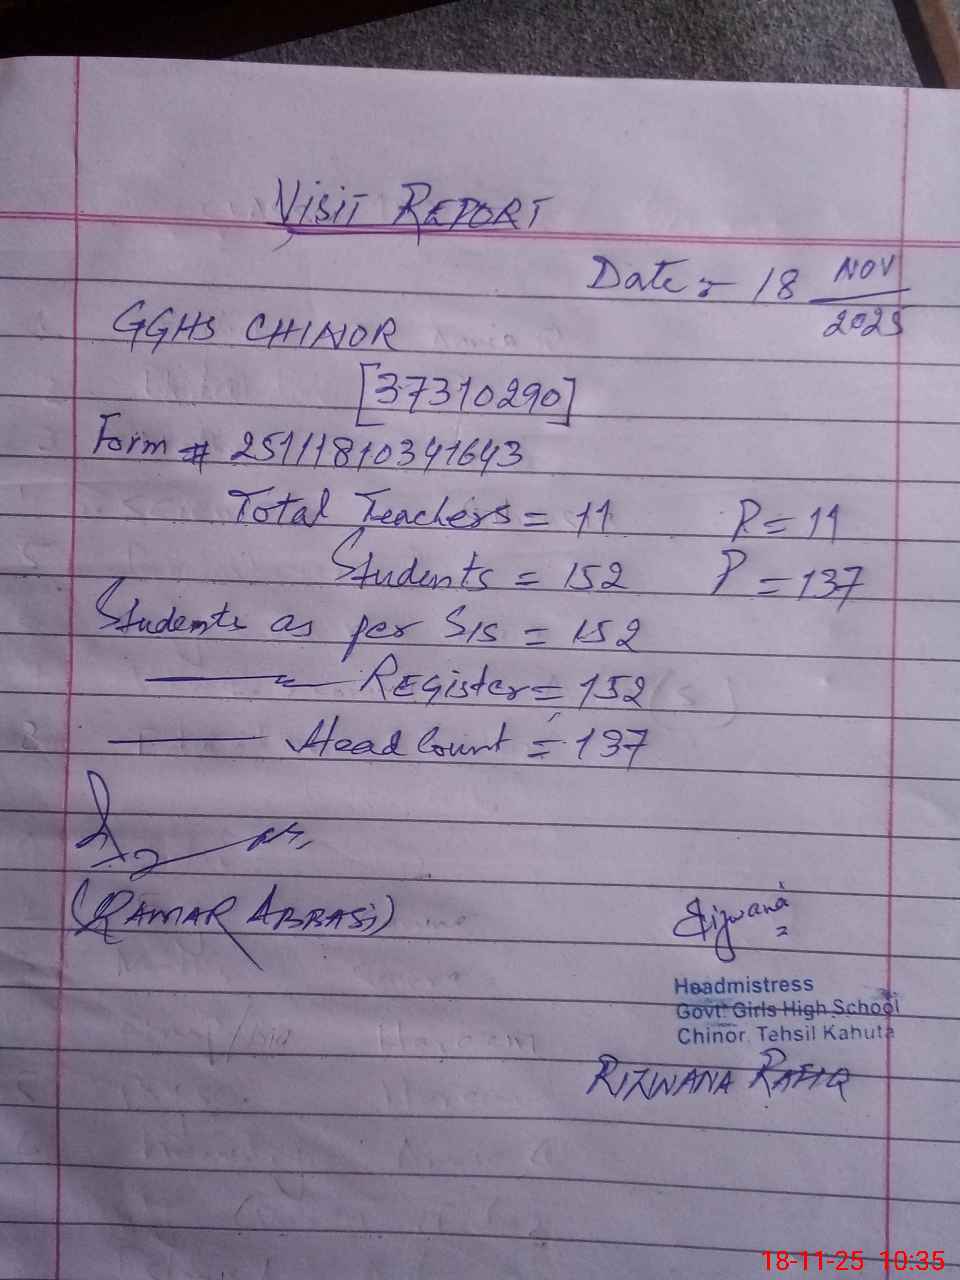 VISIT REPORT
Date:- 18 NOV
2025
GGHS CHINOR
[37310290]
Form # 25111810341643
Total Teachers = 11 P = 11
Students = 152 P = 137
Students as per SIS = 152
Register = 152
Head Count = 137
(QAMAR ABBASI)
Rizwana
Headmistress
Govt: Girls High School
Chinor Tehsil Kahuta
RIZWANA RAFIQ
18-11-25 10:35